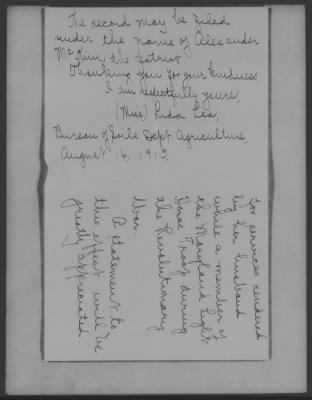 The record may be filed
under the name of Alexander
McKim, the patriot.
Thanking you for your kindness
I am respectfully yours,
(Miss) Lida Lea,
Bureau of Soils Dept Agriculture,
August 16, 1913.
for services rendered
by her husband
while a member of
the Maryland Light
Horse Troop during
the Revolutionary
War.
A statement to
this effect will be
greatly appreciated.